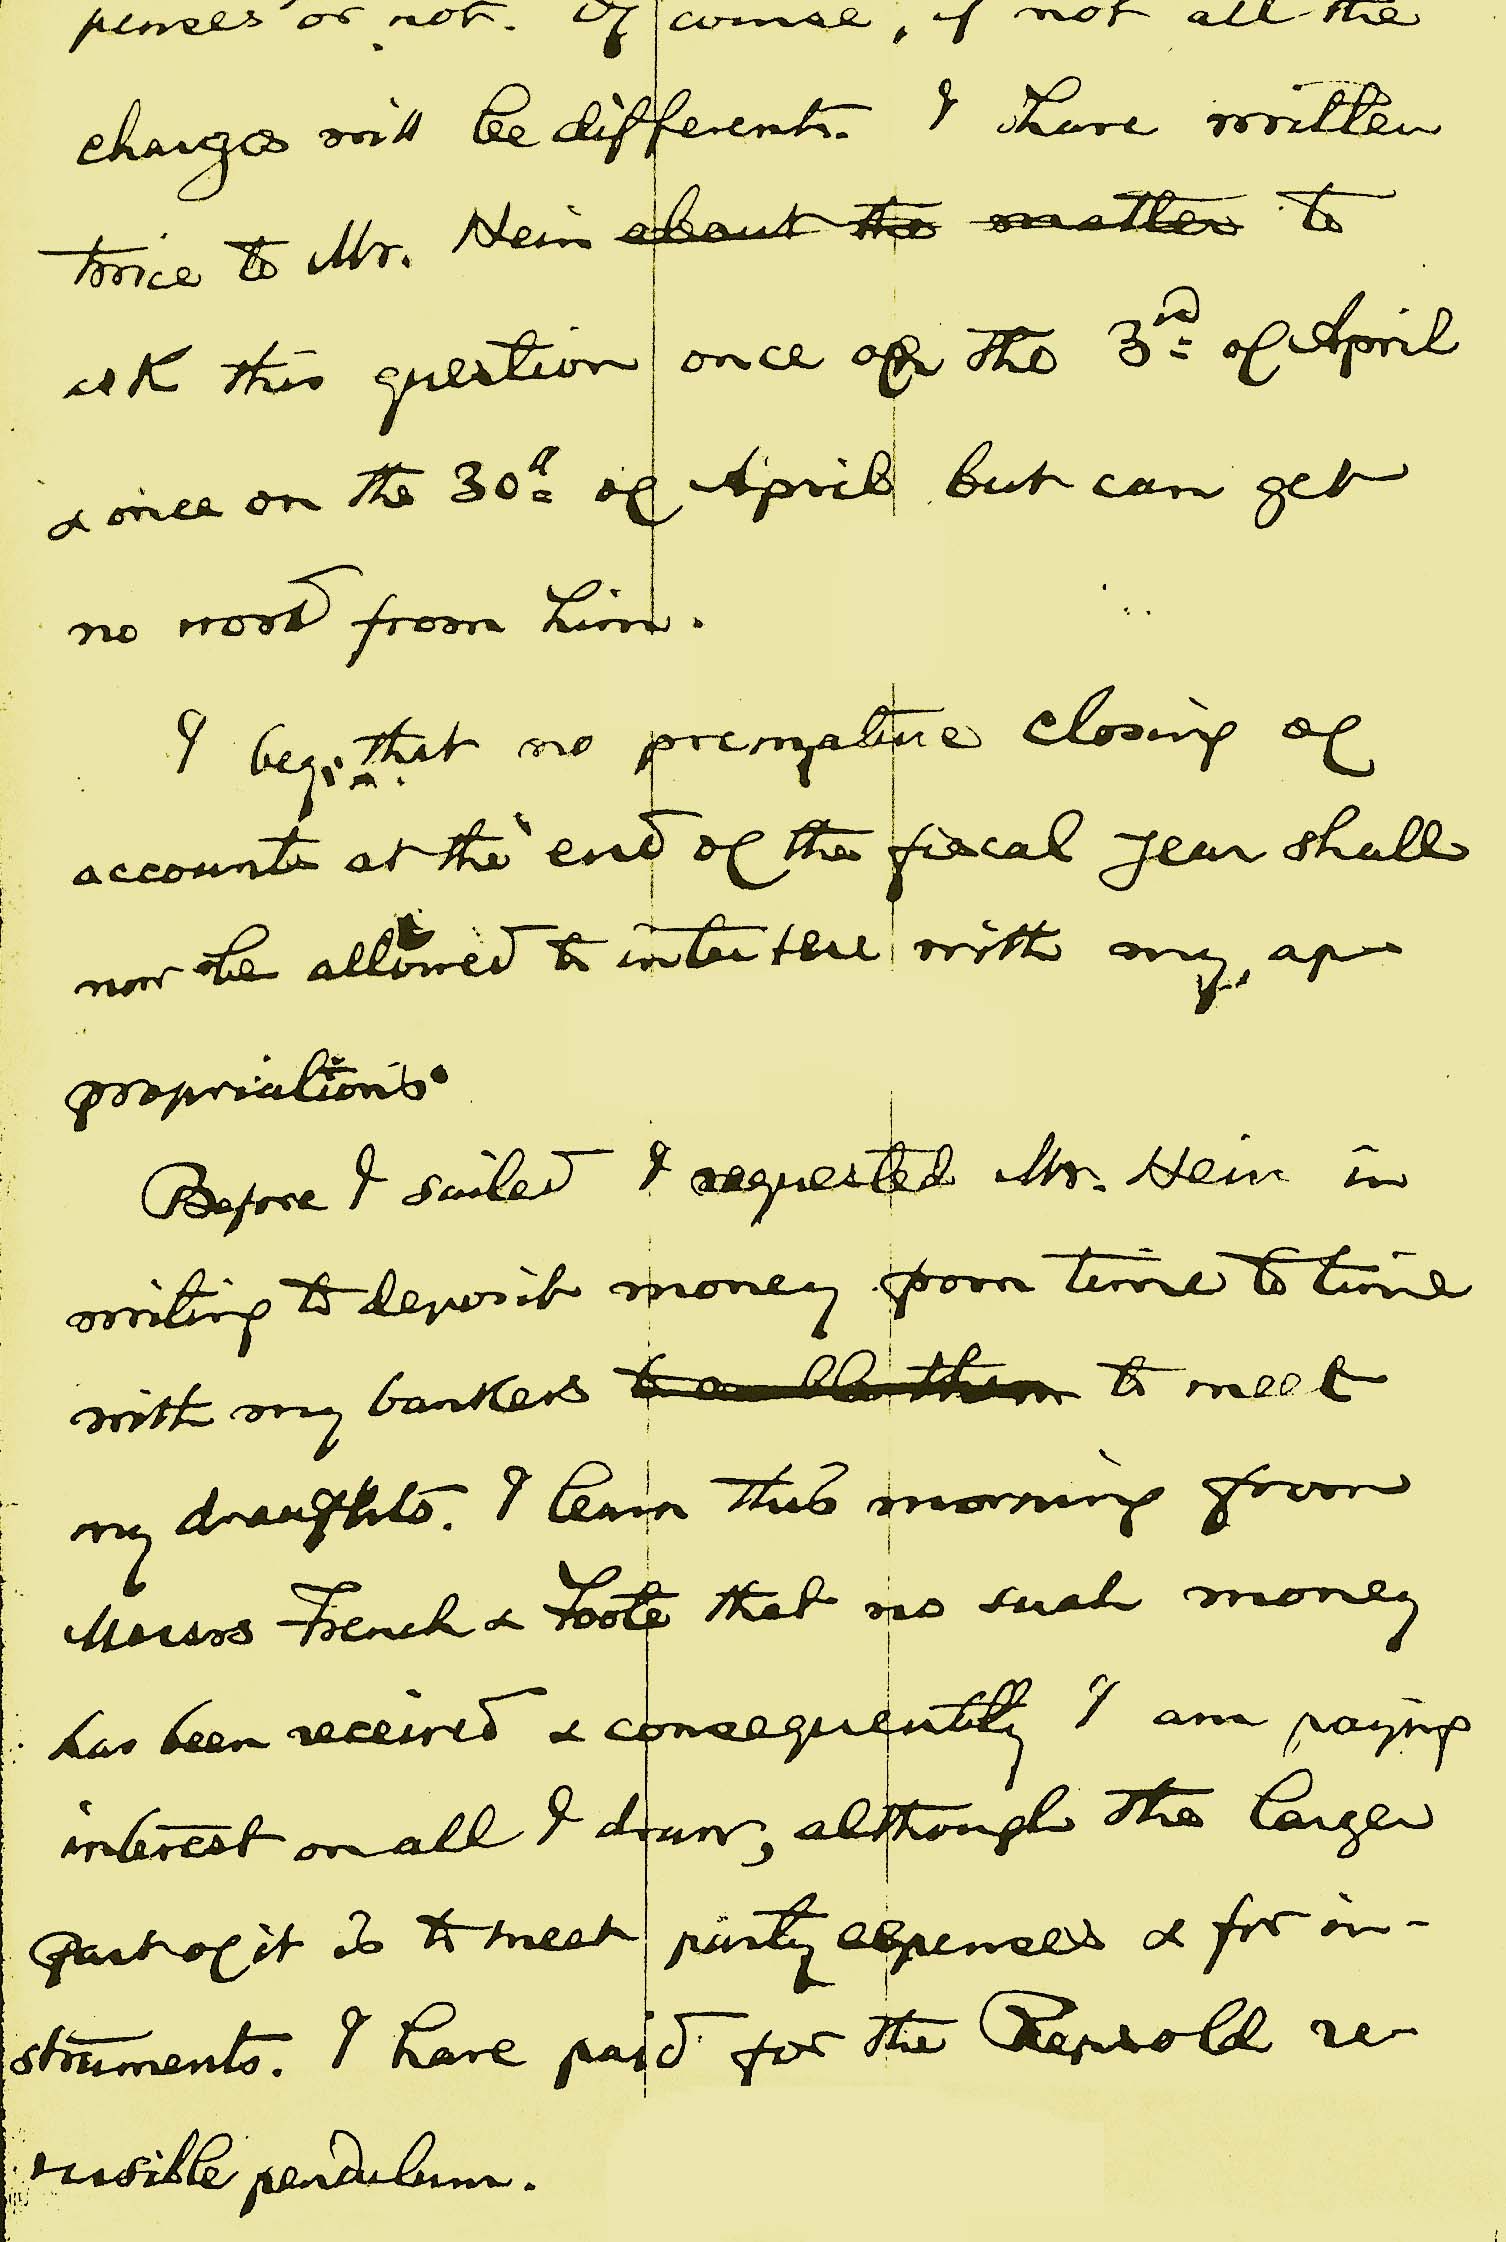 penses or not. Of course, if not all the
charges will be different. I have written
twice to Mr. Hein about the matter to
ask this question once on the 3rd of April
& once on the 30th of April but can get
no word from him.
I beg that no premature closing of
accounts at the end of the fiscal year shall
now be allowed to interfere with my ap-
propriations.
Before I sailed I requested Mr. Hein in
writing to deposit money from time to time
with my bankers to enable them to meet
my draughts. I learn this morning from
Messrs French & Foote that no such money
has been received & consequently I am paying
interest on all I draw, although the larger
part of it is to meet party expenses & for in-
struments. I have paid for the Repsold re-
versible pendulum.